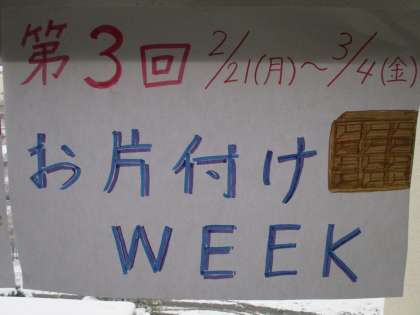 第3回 2/21(月)～3/4(金)
お片付け
WEEK